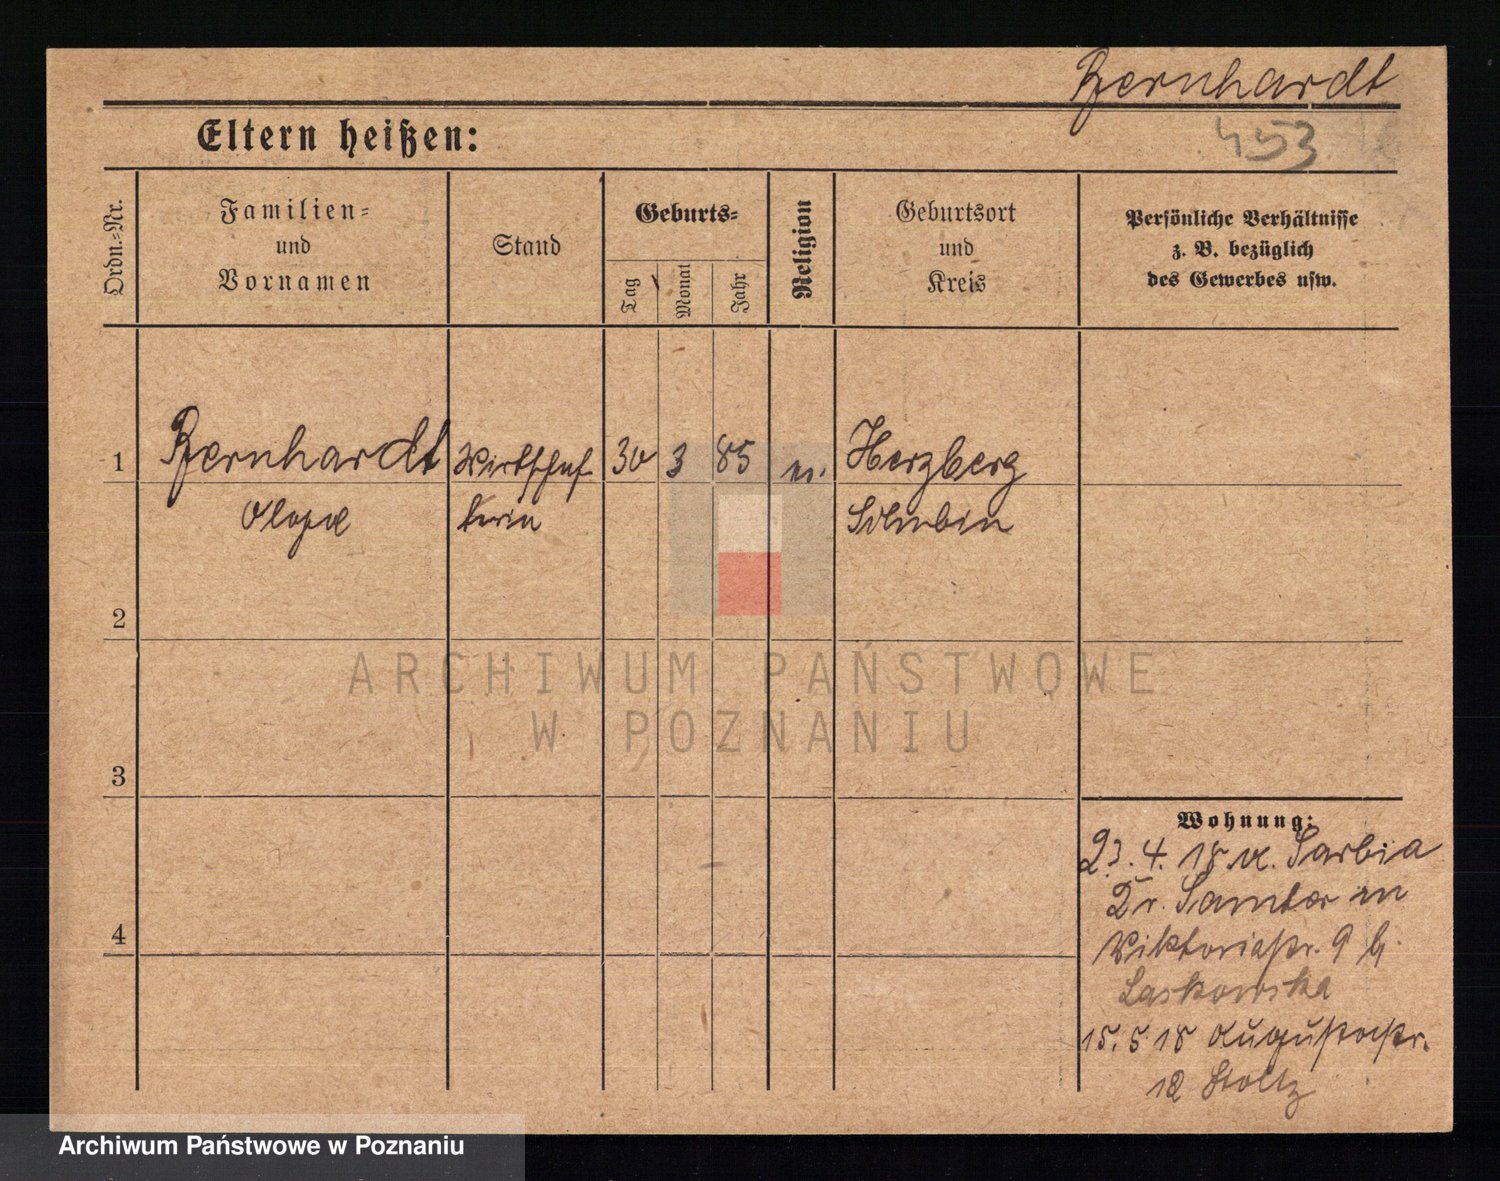 Bernhardt
453
Eltern heißen:
Ordn.=Nr.
Familien=
und
Vornamen
Stand
Geburts=
Tag
Monat
Jahr
Religion
Geburtsort
und
Kreis
Persönliche Verhältnisse
z. B. bezüglich
des Gewerbes usw.
1
Bernhardt
Wirtschaf
30
3
85
Herzberg
terin
Schubin
2
ARCHIWUM PAŃSTWOWE
W POZNANIU
3
Wohnung:
23. 4. 18 v. Sarbia
Kr. Samter in
Viktoriastr. 9 b.
Laskowska
4
15. 5 18 Augustastr.
12 Stoltz
Archiwum Państwowe w Poznaniu